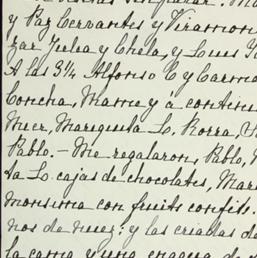 y Paz Cervantes y Viramon
zar Julia y Chela, y Luis
A las 3¼ Alfonso C y Carme
Concha, Mame y a contin
Meer, Mariquita L. Rorra,
Pablo. – Me regalaron, Pablo,
ta L. cajas de chocolates, Mar
monisima con fruits confits.
nos de nuez: y las criadas
la cama y una enagua de